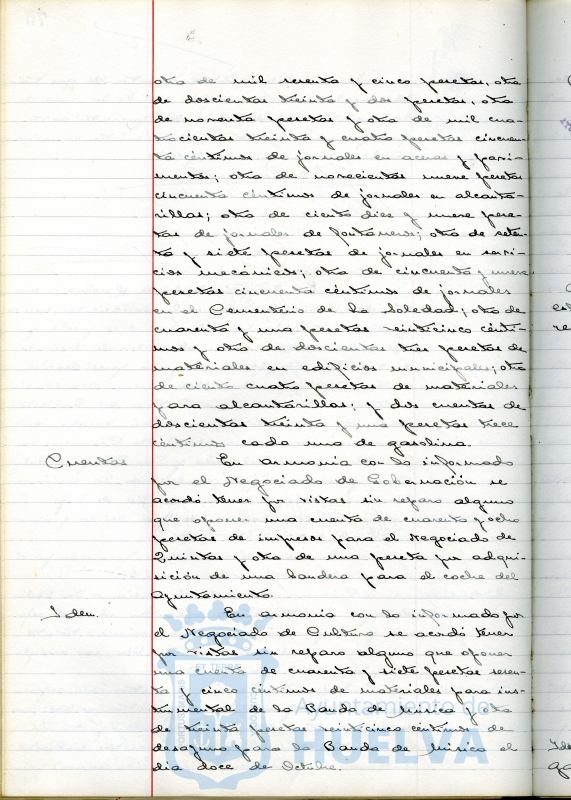 otra de mil sesenta y cinco pesetas, otra
de doscientas treinta y dos pesetas, otra
de noventa pesetas y otra de mil cua-
trocientas treinta y cuatro pesetas cincuen-
ta céntimos de jornales en aceras y pavi-
mentos; otra de novecientas nueve pesetas
cincuenta céntimos de jornales en alcanta-
rillas; otra de ciento diez y nueve pese-
tas de jornales de fontaneros; otra de seten-
ta y siete pesetas de jornales en servi-
cios mecánicos; otra de cincuenta y nueve
pesetas cincuenta céntimos de jornales
en el Cementerio de la Soledad; otra de
cuarenta y una pesetas veinticinco cénti-
mos y otra de doscientas tres pesetas de
materiales en edificios municipales; otra
de ciento cuatro pesetas de materiales
para alcantarillas; y dos cuentas de
doscientas treinta y una pesetas trece
céntimos cada una de gasolina.
Cuentas En armonía con lo informado
por el Negociado de Gobernación se
acordó tener por vistas sin reparo alguno
que oponer una cuenta de cuarenta y ocho
pesetas de impresos para el Negociado de
Quintas y otra de una peseta por adqui-
sición de una bandera para el coche del
Ayuntamiento.
Idem. En armonía con lo informado por
el Negociado de Cultura se acordó tener
por vistas sin reparo alguno que oponer
una cuenta de cuarenta y siete pesetas sesen-
ta y cinco céntimos de materiales para ins-
trumental de la Banda de Música y otra
de treinta pesetas veinticinco céntimos de
desayuno para la Banda de Música el
día doce de Octubre.
Ayuntamiento de
HUELVA